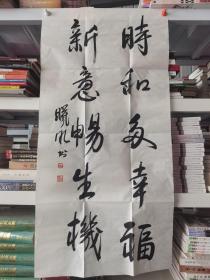 時和多幸福
新意暢生機
曉帆书